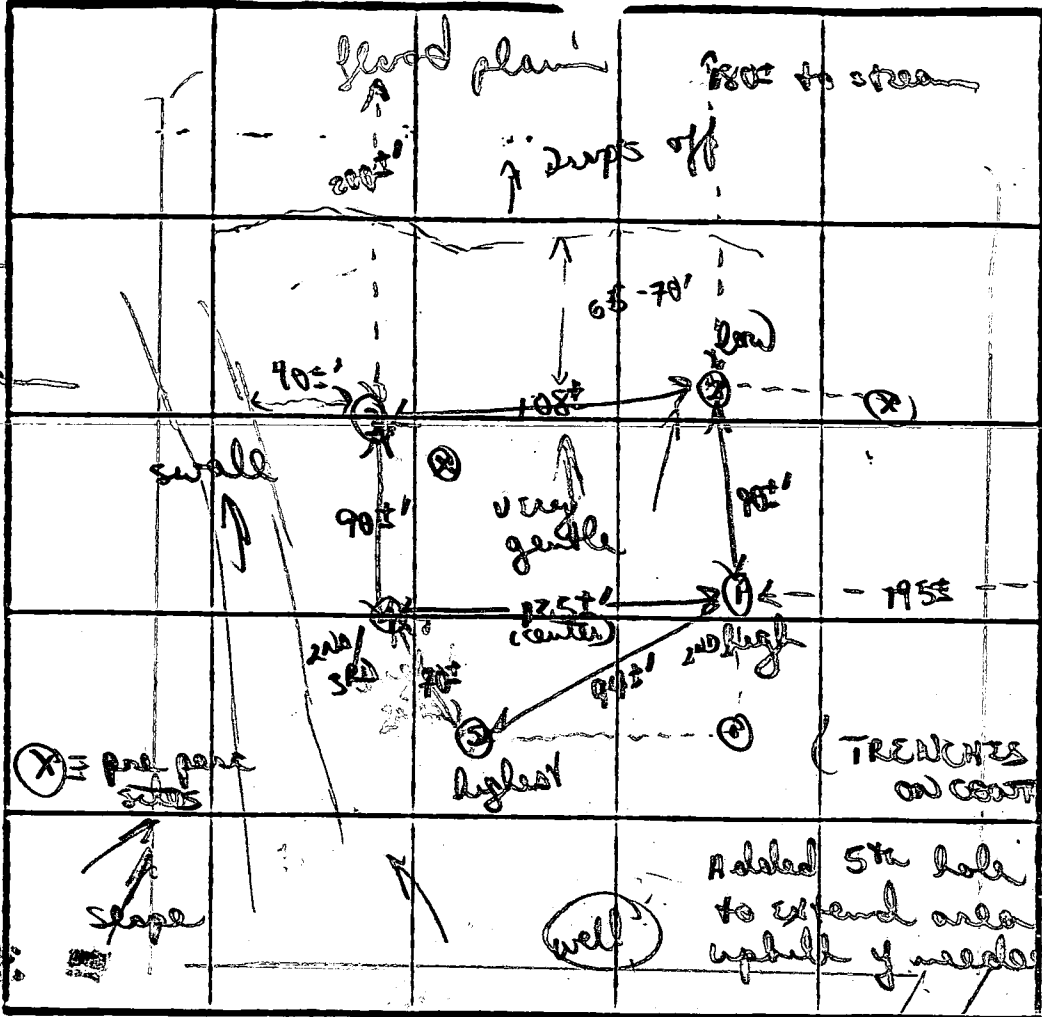 flood plain
180± to stream
200±'
Drops off
65-70'
low
40±'
3
108±
2
X
swall
X
90±'
very
gentle
90±'
4
125±'
(center)
1
195±
2ND
3RD
70±
94±'
2ND high
5
highest
X ≡ pre perc
sites
TRENCHES
ON CONT
slope
well
Added 5th hole
to extend area
uphill if neede